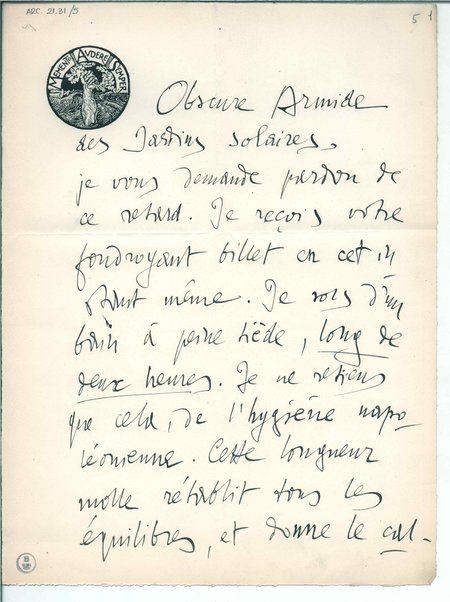 ARC. 21.31/5
5 1
MEMENTO AUDERE SEMPER
Obscure Armide
des Jardins solaires,
je vous demande pardon de
ce retard. Je reçois votre
foudroyant billet en cet in
stant même. Je sors d'un
bain à peine tiède, long de
deux heures. Je ne retiens
que cela, de l'hygiène napo-
léonienne. Cette longueur
molle rétablit tous les
équilibres, et donne le cal-